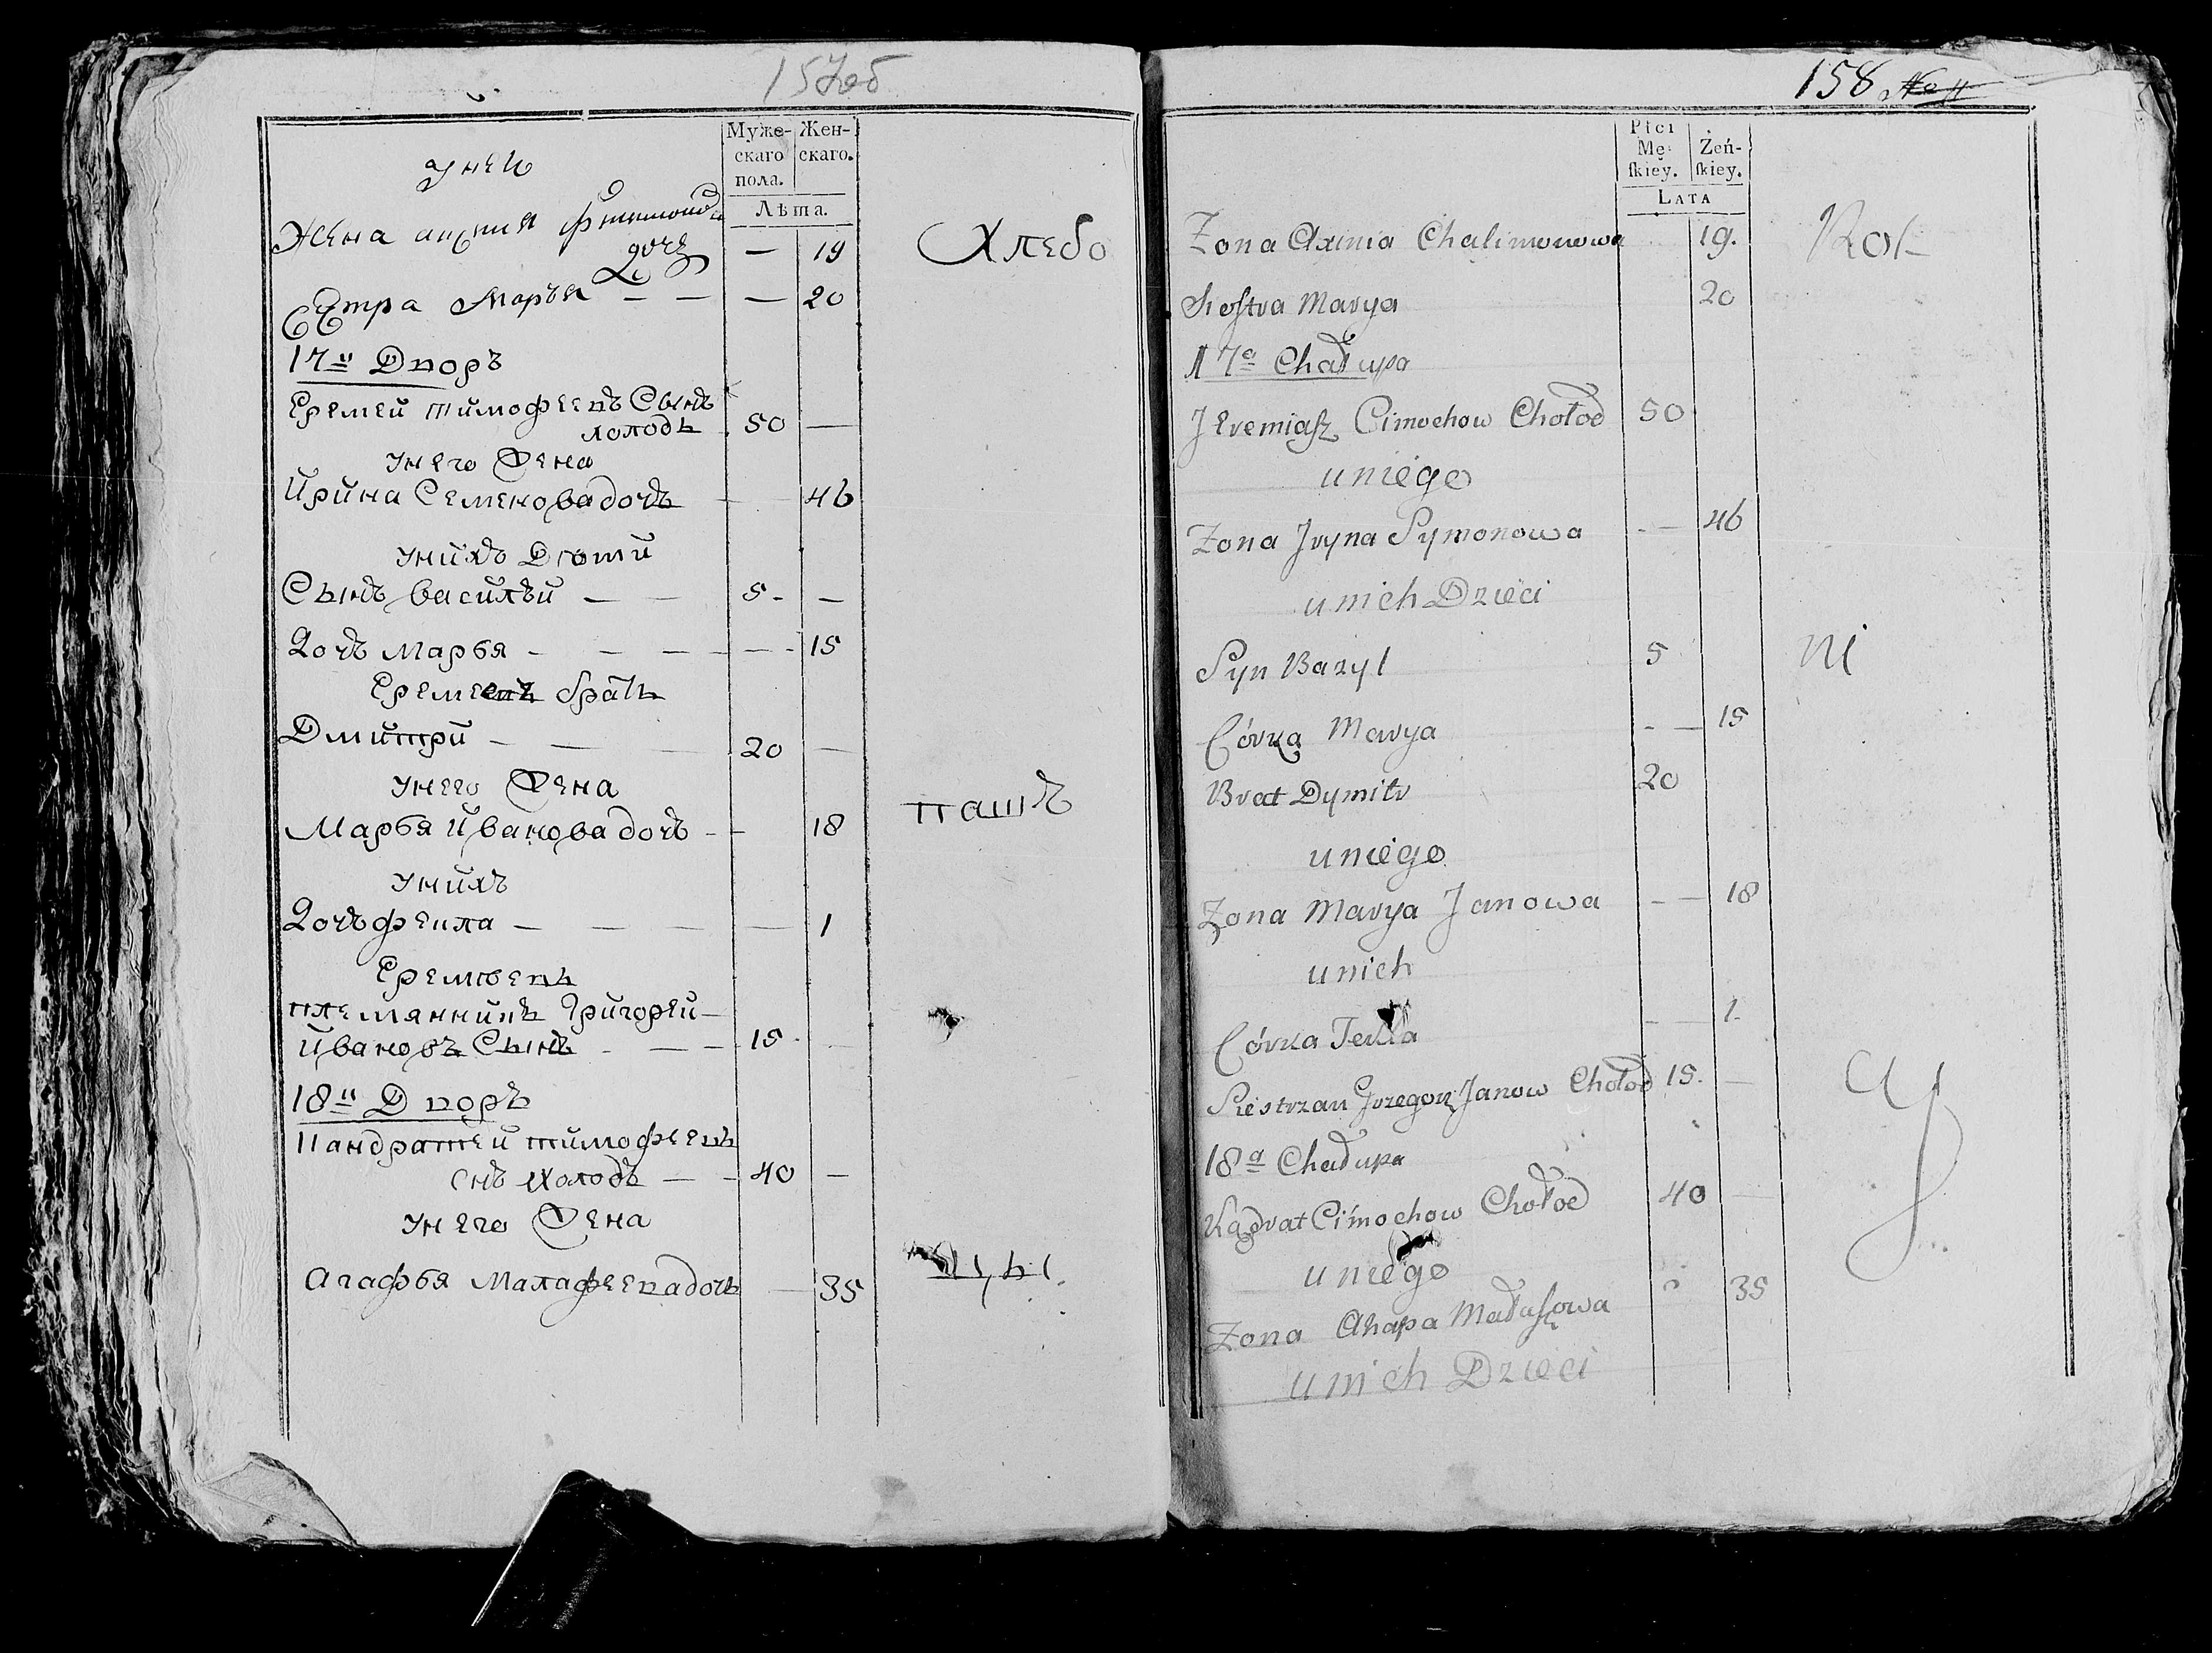 157об
Муже- Жен-
скаго скаго.
пола.
Лѣта.
унеи
Жена
дочь — 19
Хлебо
Сестра Марья — — — 20
17й Дворъ
Еремей Тимофеевъ Сынъ
Холодъ 50 —
унего Жена
Ирина Семенова дочь — 46
унихъ Дѣти
Сынъ Василѣй — 5 — —
Дочь Марья — — — — 15
Еремеевъ братъ
Дмитри — — 20 —
унего Жена
пашъ
Марья Иванова дочь — 18
унихъ
Дочь Фекла — — — — 1
Еремѣевъ
племянникъ Григорей —
Ивановъ Сынъ — — 15 —
18й Дворъ
Кандратей Тимофеевъ
снъ Холодъ — — 40 —
унего Жена
Агафья Малафеева дочь — 35
158
Płci
Mę- Żeń-
ſkiey. ſkiey.
Lata
Żona Axinia Chalimonowa 19.
Rol-
Sioſtra Marya 20
17a Chałupa
Jeremiaſz Cimochow Chołod 50
uniego
Żona Jryna Symonowa - — 46
unich Dzieci
Syn Bazyl 5
ni
Córka Marya - — 15
Brat Dymitr 20
uniego
Żona Marya Janowa - — 18
unich
Córka Tekla - — 1
Siestrzan Grzegorz Janow Chołod 15. —
cy
18a Chałupa
Kądrat Cimochow Chołod 40 —
uniego
Żona Ahapa Małaſzowa 35
unich Dzieci